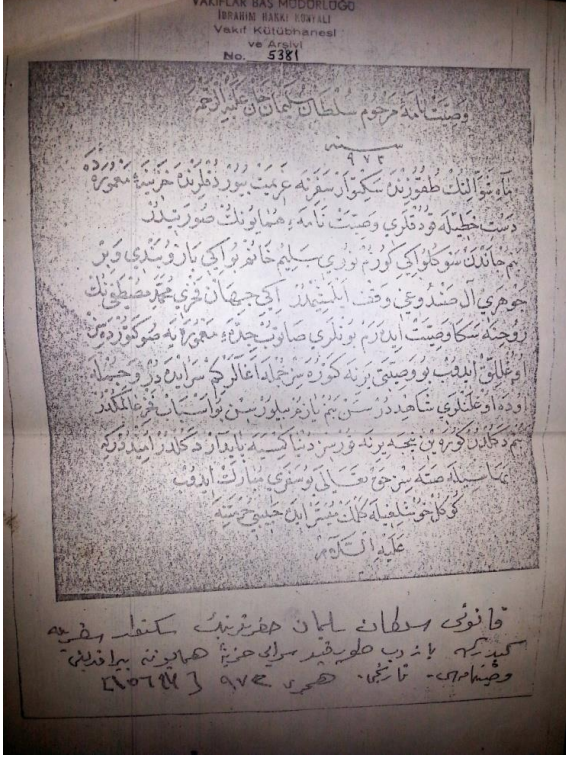 VAKIFLAR BAŞ MÜDÜRLÜĞÜ
İBRAHİM HAKKI KONYALI
Vakıf Kütübhanesi
ve Arşivi
No. 5381
وصيتنامهٔ مرحوم سلطان سليمان خان عليه الرحمه
سنه
٩٧٣
ماه شوالنك طقوزنده سكتوار سفرينه عزيمت بيوردقلرنده خزينهٔ معموره ده
دست خطيله قودقلرى وصيت نامهٔ همايونك صورتيدر
بنم جاندن سوكلو ايكى كوزم نورى سليم خانم بو ايكى بازوبندى و بر
جوهرى آل صندوغى وقف ايلمشمدر ايكى جهان فخرى محمد مصطفى نك
روحنه سكا وصيت ايدرم بونلرى صاتوب جدهٔ معموره يه صو كتورده سن
اوغللق ايدوب بو وصيتى يرينه كتوره سز جمله اغالر كم سرايده در و
اوده اوغلنلرى شاهددر سن بنم يازمز بيلورسن بو اسباب
بنم دكلدر كوره يم نيجه يرينه قورسز دنيا كمسه يه پايدار دكلدر اميددر كه
تماميله صته سز حق تعالى بو سفرى مبارك ايدوب
كوكل خوشلغيله كلمك ميسر ايده حبيبى حرمتنه
عليه السلام
قانونى سلطان سليمان حضرتلرينك سكتوار سفرينه
كيدركن يازوب طوپقپو سرايى خزينهٔ همايوننه بيراقديغى
وصيتنامه سى. تاريخى. هجرى ٩٧٣